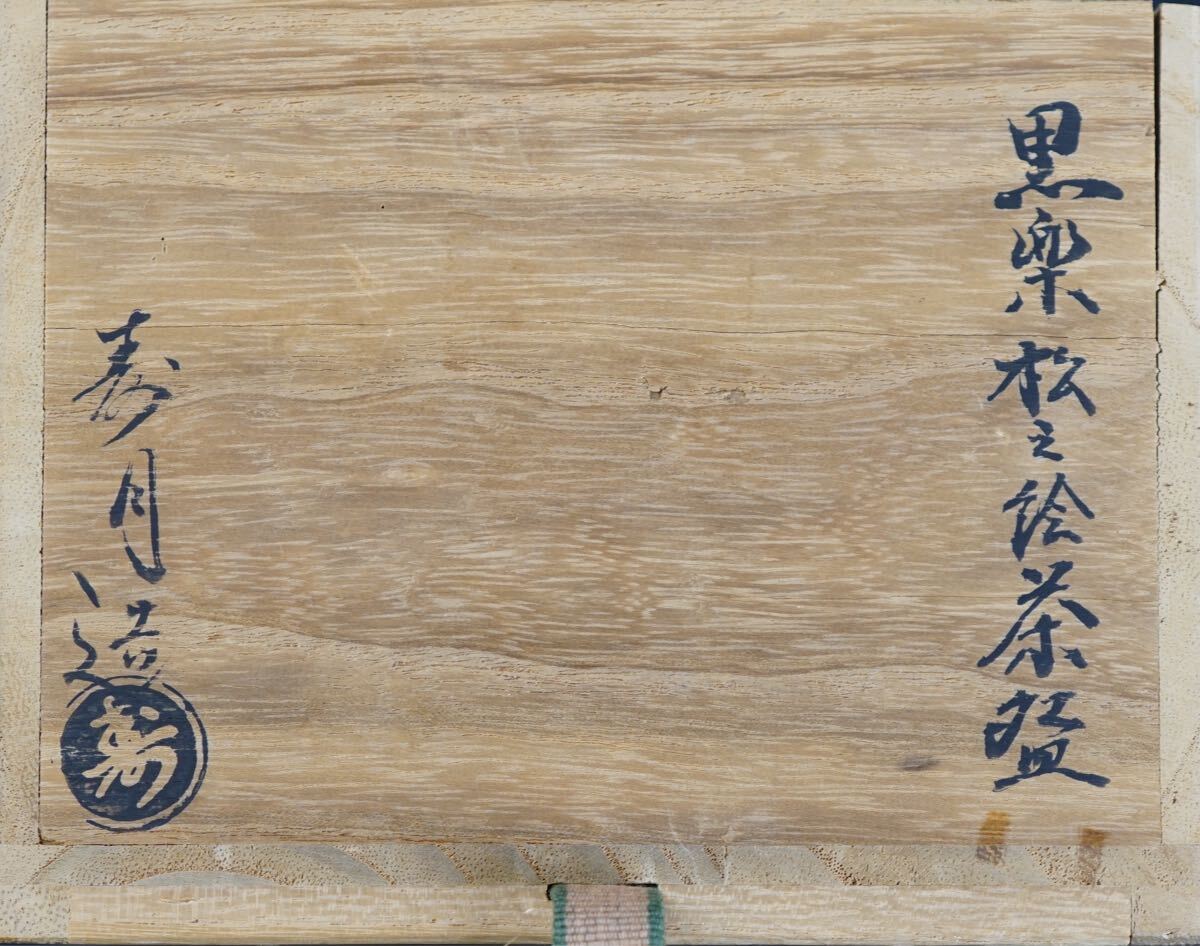 黒楽松之絵茶盌
寿月造
寿